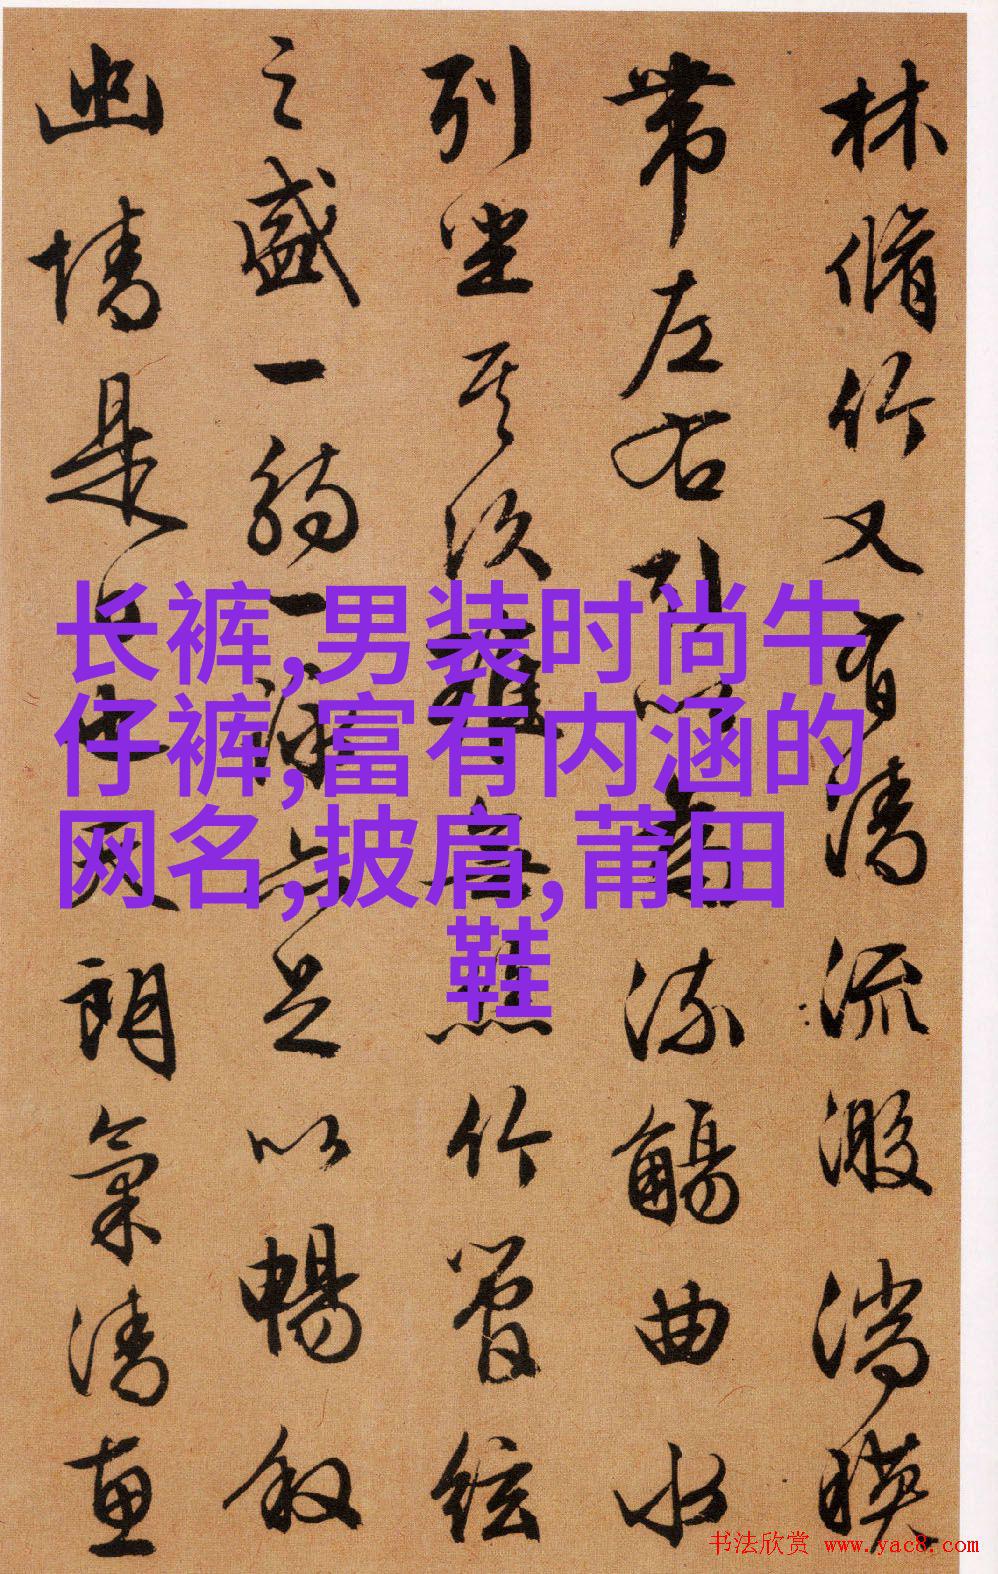 长裤,男装时尚牛
仔裤,富有内涵的
网名,披肩,莆田
鞋
林脩竹又有清流激湍映
帶左右引以為流觴曲水
列坐其次雖無竹管絃
之盛一觴一詠亦足以暢敘
幽情是日也天朗氣清惠
书法欣赏 www.yac8.com